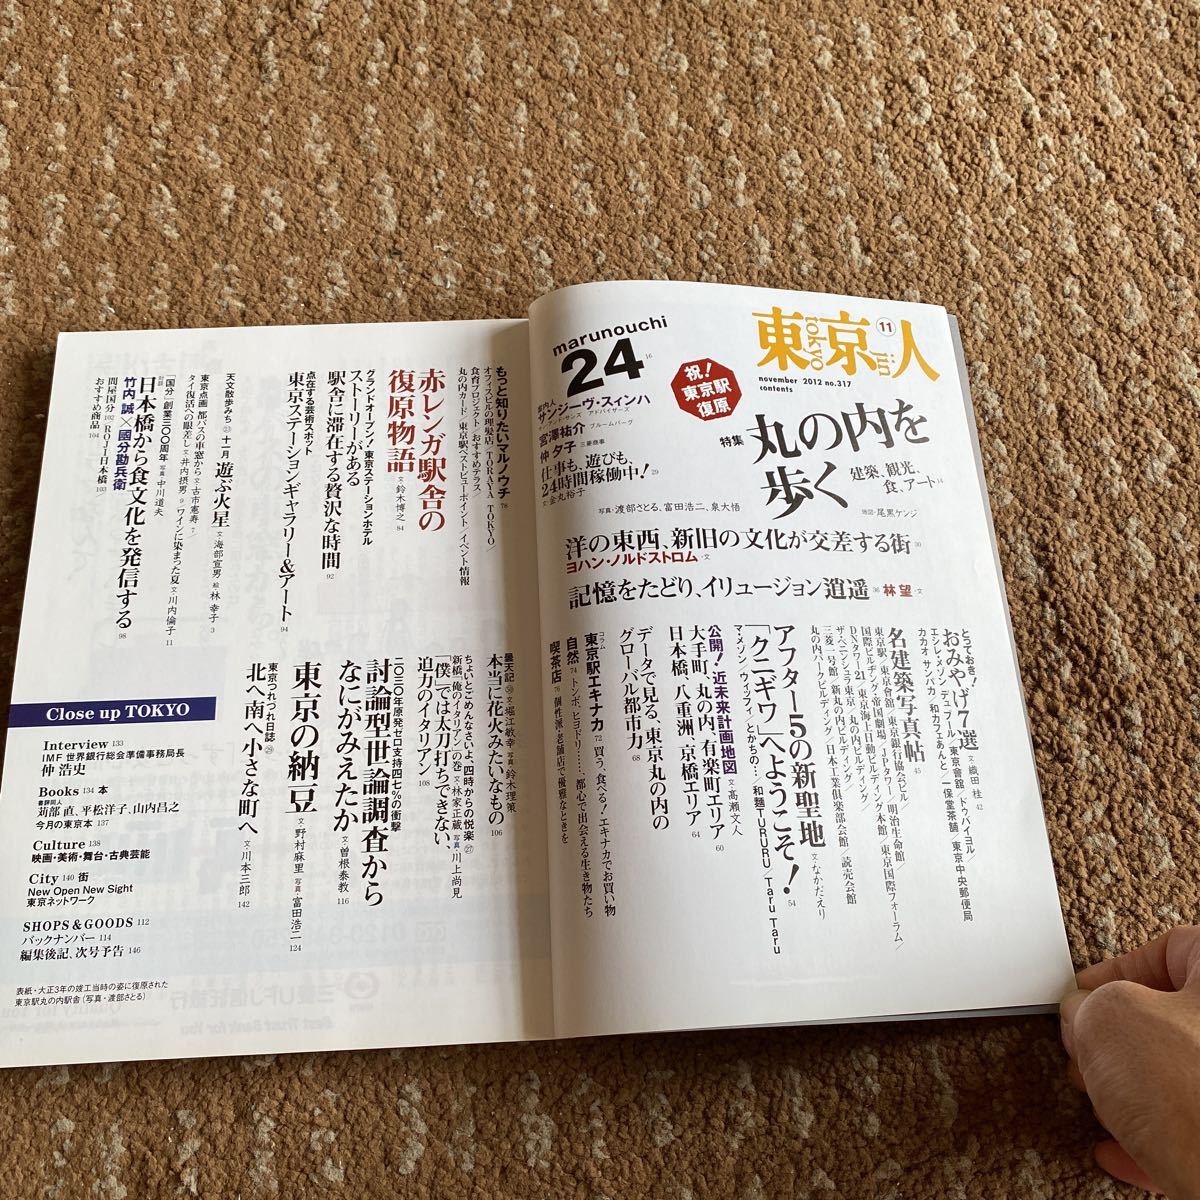 東京人
tokyo jin
11
november 2012 no.317
contents
祝!
東京駅
復原
特集
丸の内を
歩く
建築、観光、
食、アート 14
地図・尾黒ケンジ
marunouchi
24 16
案内人
サンジーヴ・スィンハ
アドバイザーズ
宮澤祐介 ブルームバーグ
仲 夕子 三菱商事
仕事も、遊びも、
24時間稼働中! 29
文・金丸裕子
写真・渡部さとる、富田浩二、泉大悟
洋の東西、新旧の文化が交差する街 30
ヨハン・ノルドストロム・文
記憶をたどり、イリュージョン逍遥 36 林 望・文
とっておき!
おみやげ7選 文・織田 桂 42
エシレ・メゾン デュ ブール/東京會舘/ドゥバイヨル/
カカオ サンパカ/和カフェあんと/一保堂茶舗/東京中央郵便局
名建築写真帖 45
東京駅/東京會舘/東京銀行協会ビル/
国際ビルヂング・帝国劇場/JPタワー/明治生命館/
DNタワー21/東京海上日動ビルディング本館/東京国際フォーラム/
ザ・ペニンシュラ東京/丸の内ビルディング/
三菱一号館/新丸の内ビルディング/日本工業倶楽部会館/読売会館/
丸の内パークビルディング
アフター5の新聖地 文・なかだえり
「クニギワ」へようこそ! 54
マ・メゾン/ウィフィ/とかちの…/和麺TURURU/Taru Taru
公開!近未来計画地図 文・高瀬文人
大手町、丸の内、有楽町エリア 60
日本橋、八重洲、京橋エリア 64
データで見る、東京丸の内の
グローバル都市力 68
コラム
東京駅エキナカ 72 買う、食べる!エキナカでお買い物
自然 74 トンボ、ヒヨドリ……、都心で出会える生き物たち
喫茶店 76 個性派・老舗店で優雅なときを
もっと知りたいマルノウチ 78
オフィスビルの理髪店/TORAYA TOKYO/
食育プロジェクト/おすすめテラス/
丸の内カード/東京駅ベストビューポイント/イベント情報
赤レンガ駅舎の
復原物語 文・鈴木博之 84
グランドオープン!東京ステーションホテル
ストーリーがある
駅舎に滞在する贅沢な時間 92
点在する芸術スポット
東京ステーションギャラリー&アート 94
天文散歩みち 23 十一月 遊ぶ火星 文・海部宣男 絵・林 幸子 3
東京点画 都バスの車窓から 文・古市憲寿 7
タイ復活への眼差し 文・井内摂男 9/ワインに染まった夏 文・川内倫子 11
「国分」創業三〇〇周年 写真・中川道夫
対談
日本橋から食文化を発信する 98
竹内 誠×國分勘兵衛
問屋国分 102/ROJI日本橋 103
おすすめ商品 104
曇天記 50 文・堀江敏幸 写真・鈴木理策
本当に花火みたいなもの 106
ちょいとごめんなさいよ、四時からの悦楽 27
新橋「俺のイタリアン」の巻 文・林家正蔵 写真・川上尚見
「僕」では太刀打ちできない、
迫力のイタリアン 108
二〇三〇年原発ゼロ支持四七%の衝撃
討論型世論調査から
なにがみえたか 文・曽根泰教 116
東京の納豆 文・野村麻里 写真・富田浩二 124
東京つれづれ日誌 29
北へ南へ小さな町へ 文・川本三郎 142
Close up TOKYO
Interview 133
IMF 世界銀行総会準備事務局長
仲 浩史
Books 134 本
書評同人
苅部 直、平松洋子、山内昌之
今月の東京本 137
Culture 138
映画・美術・舞台・古典芸能
City 140 街
New Open New Sight
東京ネットワーク
SHOPS & GOODS 112
バックナンバー 114
編集後記、次号予告 146
表紙・大正3年の竣工当時の姿に復原された
東京駅丸の内駅舎(写真・渡部さとる)